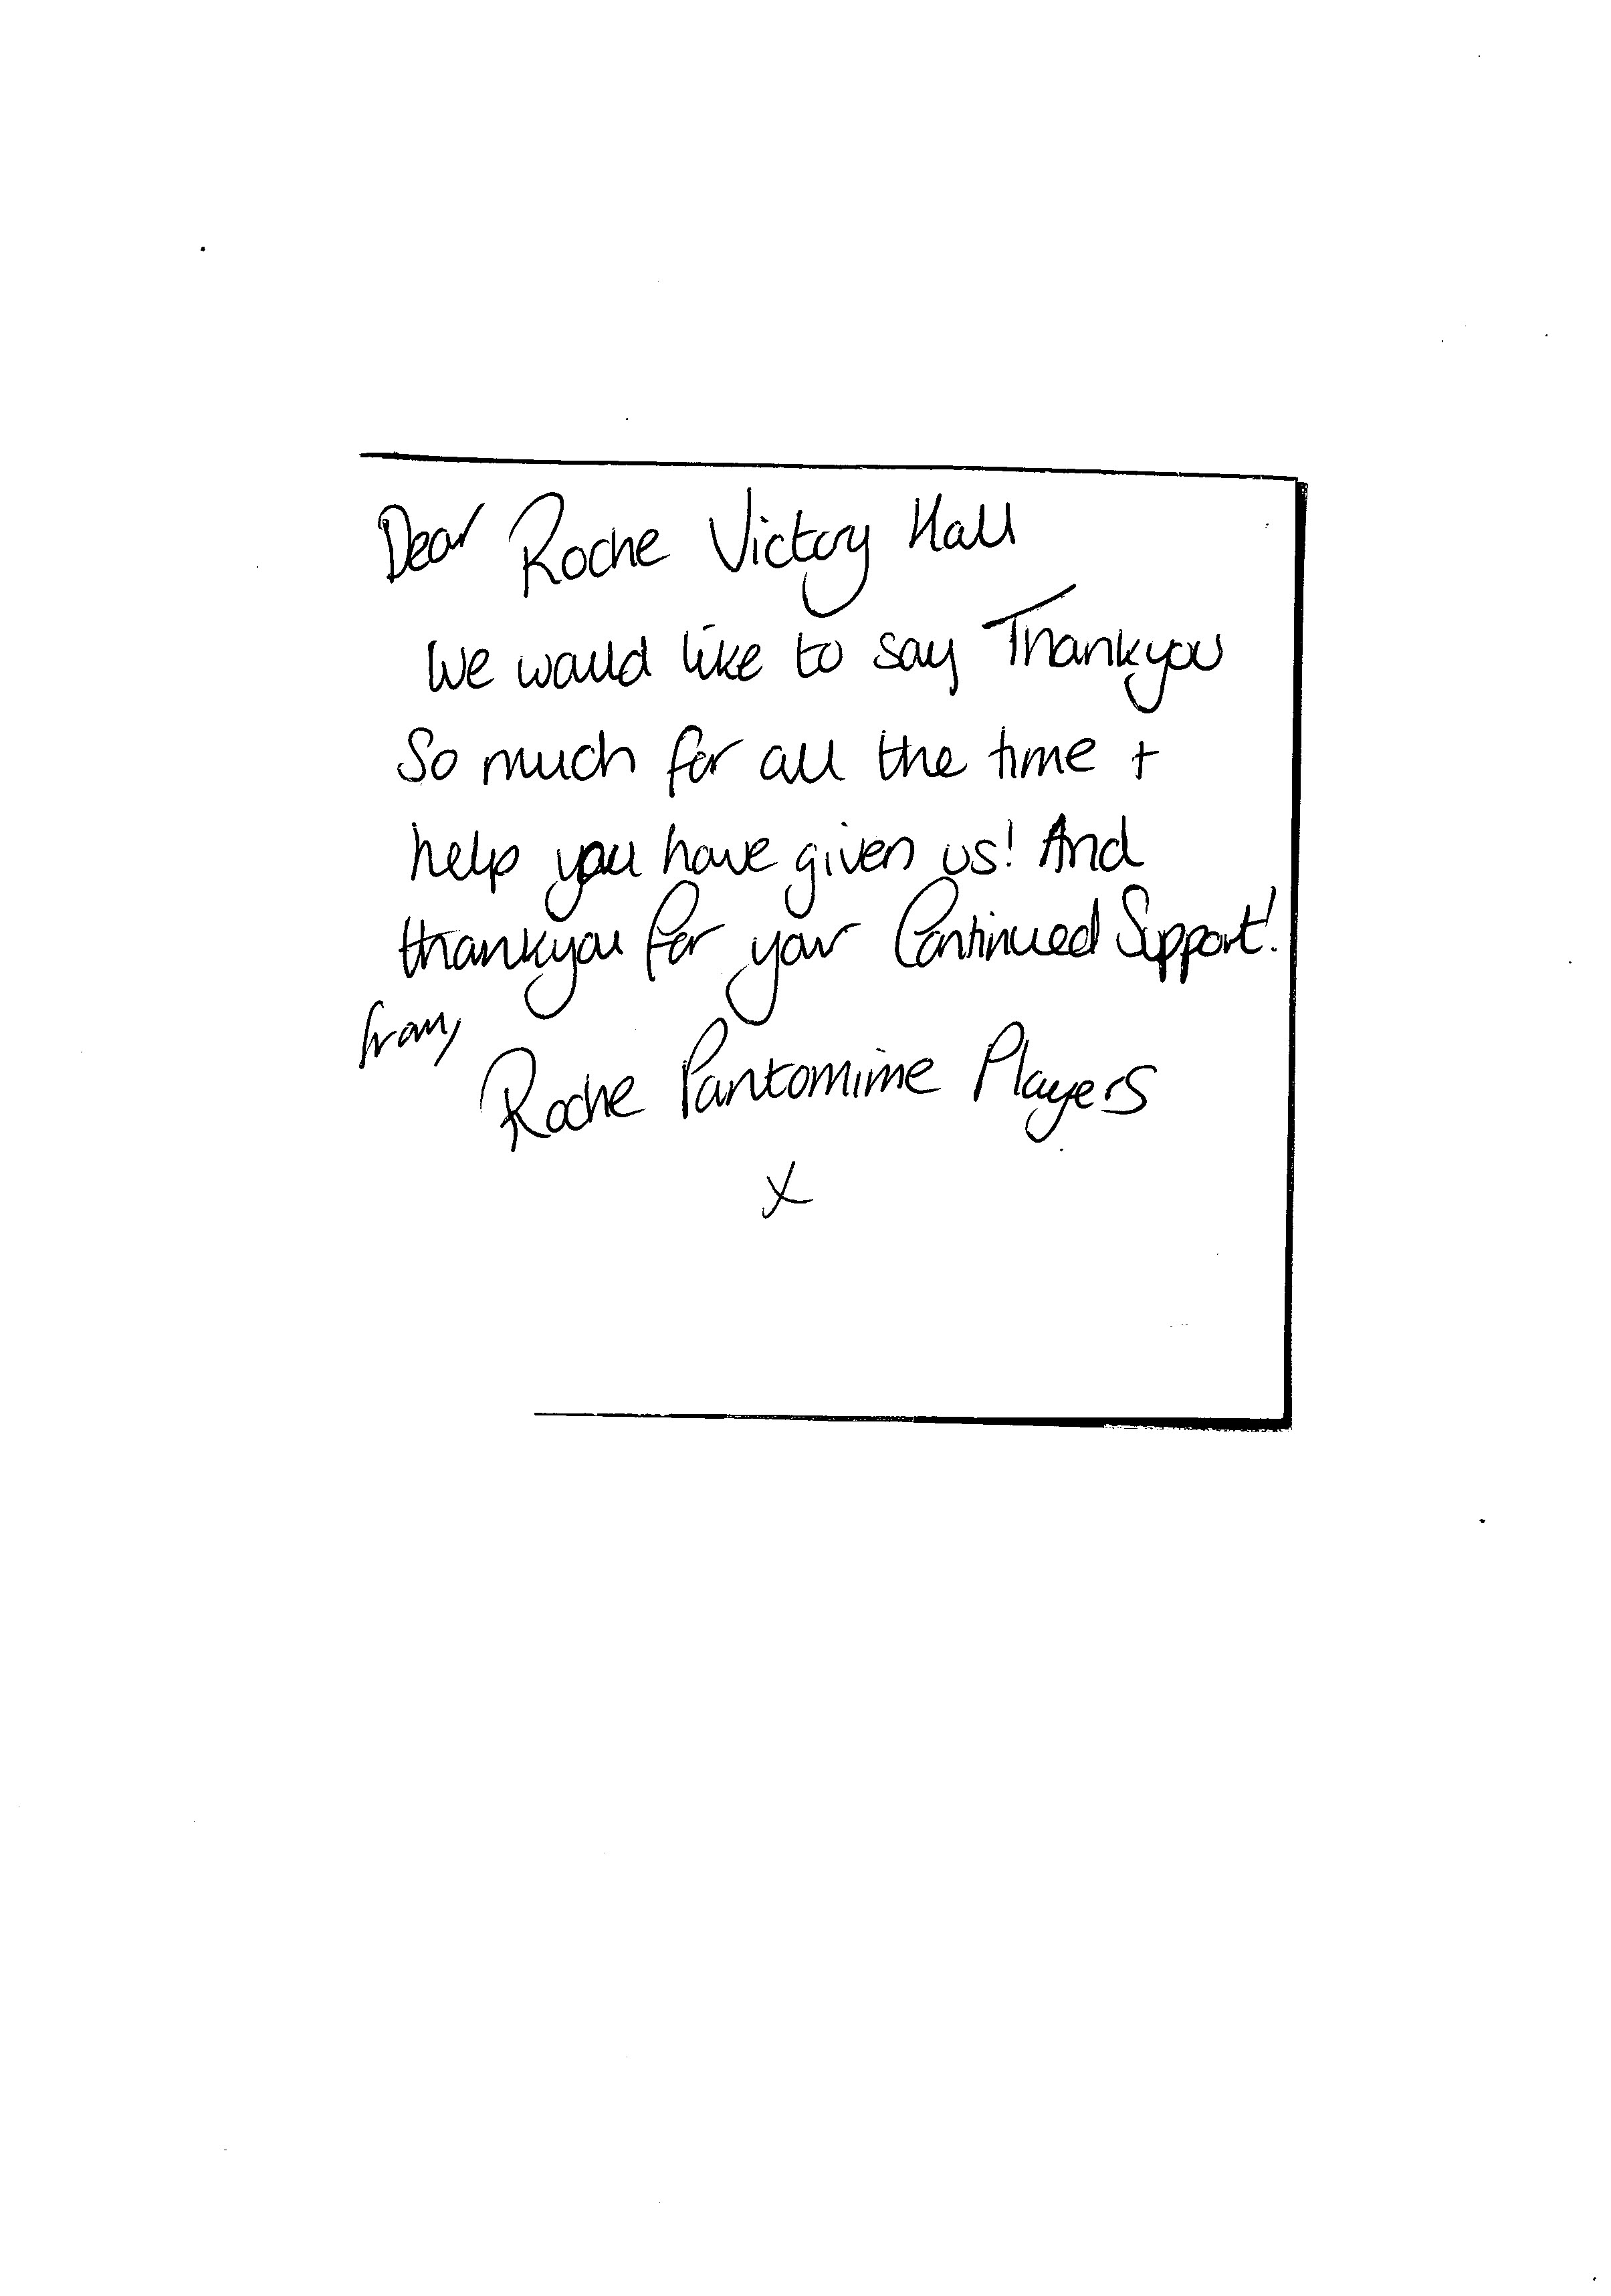 Dear Roche Victory Hall
We would like to say Thankyou
So much for all the time +
help you have given us! And
thankyou for your Continued Support!
from,
Roche Pantomime Players
x